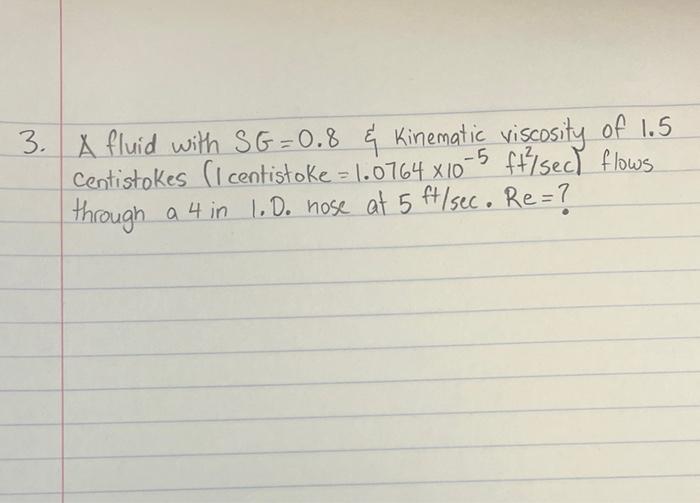 3. A fluid with SG=0.8 & Kinematic viscosity of 1.5
centistokes (1 centistoke = 1.0764 x10⁻⁵ ft²/sec) flows
through a 4 in I.D. hose at 5 ft/sec. Re=?